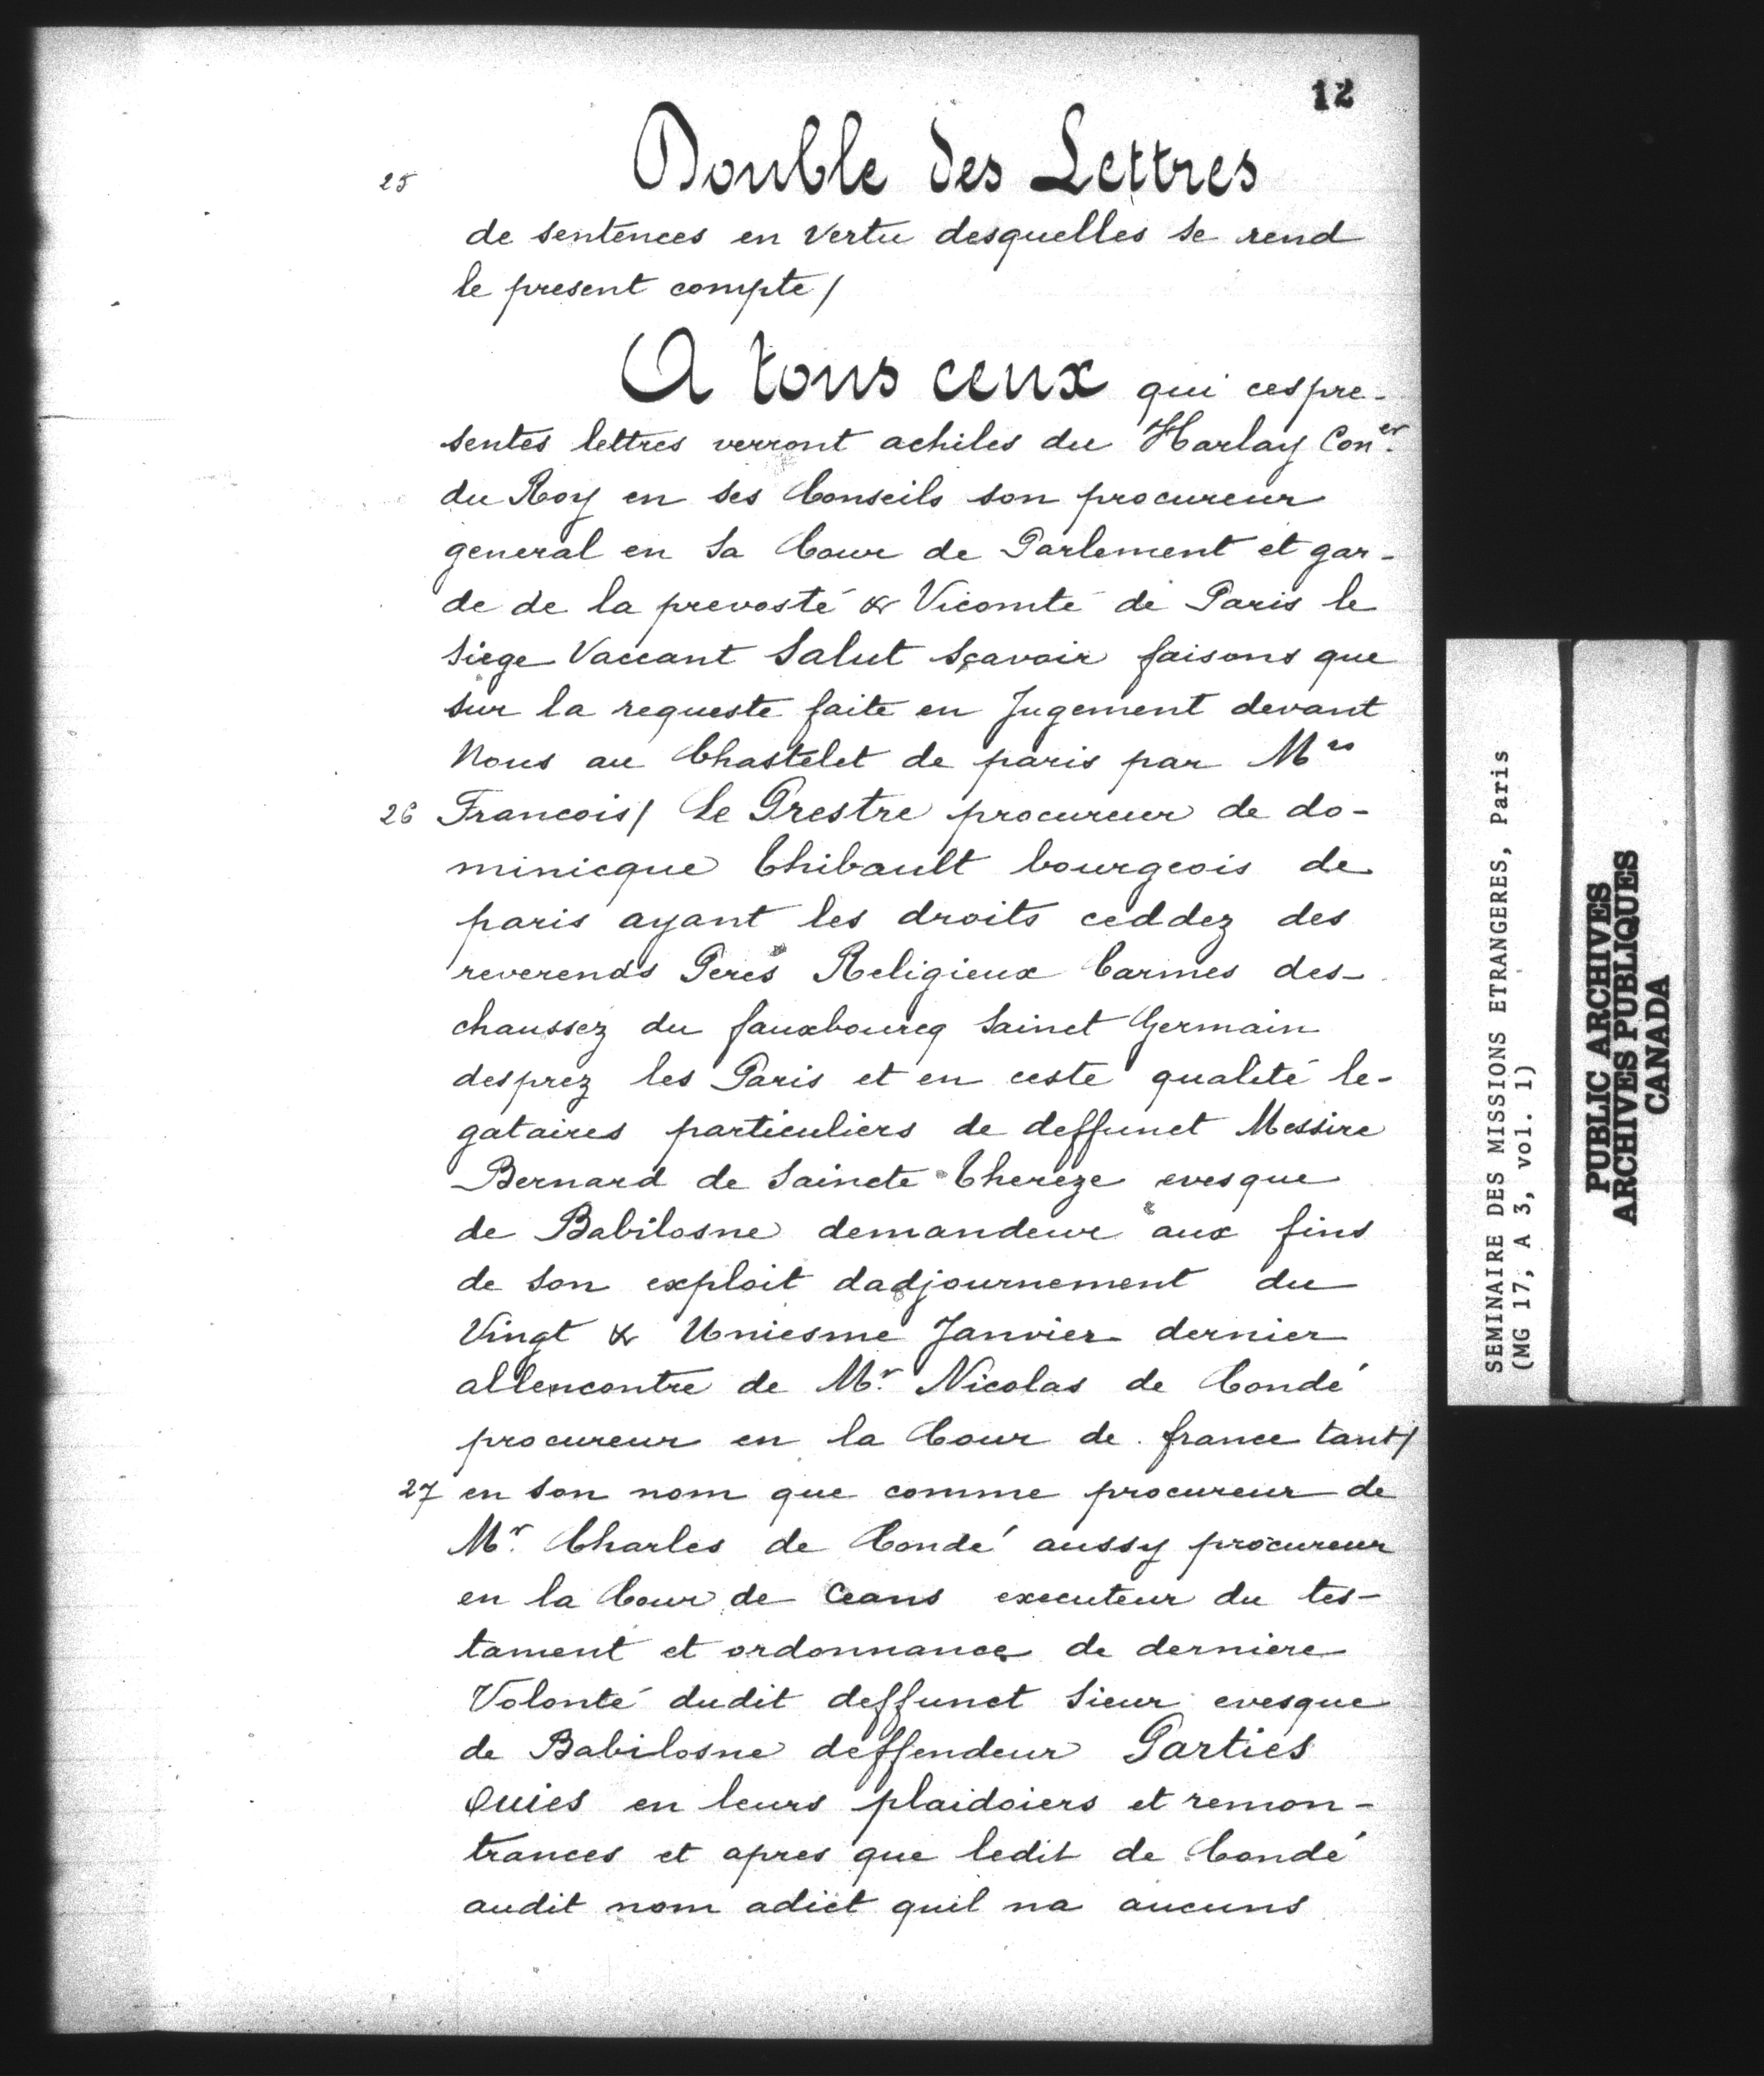 12
25 Double des Lettres
de sentences en vertu desquelles se rend
le present compte/
A tous ceux qui ces pre-
sentes lettres verront achiles du Harlay Con.er
du Roy en ses Conseils son procureur
general en sa Cour de Parlement et gar-
de de la prevosté & Vicomté de Paris le
siege Vaccant Salut sçavoir faisons que
sur la requeste faite en Jugement devant
Nous au Chastelet de paris par Mre
26 Francois/ Le Prestre procureur de do-
minicque Thibault bourgeois de
paris ayant les droits ceddez des
reverends Peres Religieux Carmes des-
chaussez du fauxbourcq Sainct Germain
desprez les Paris et en ceste qualité le-
gataires particuliers de deffunct Messire
Bernard de Saincte Thereze evesque
de Babilosne demandeur aux fins
de son exploit dadjournement du
Vingt & Uniesme Janvier dernier
allencontre de Mr. Nicolas de Condé
procureur en la Cour de france tant/
27 en son nom que comme procureur de
Mr. Charles de Condé aussy procureur
en la Cour de Ceans executeur du tes-
tament et ordonnance de derniere
Volonté dudit deffunct Sieur evesque
de Babilosne deffendeur Parties
Ouies en leurs plaidoiers et remon-
trances et apres que ledit de Condé
audit nom adict quil na aucuns
SEMINAIRE DES MISSIONS ETRANGERES, Paris
(MG 17, A 3, vol. 1)
PUBLIC ARCHIVES
ARCHIVES PUBLIQUES
CANADA